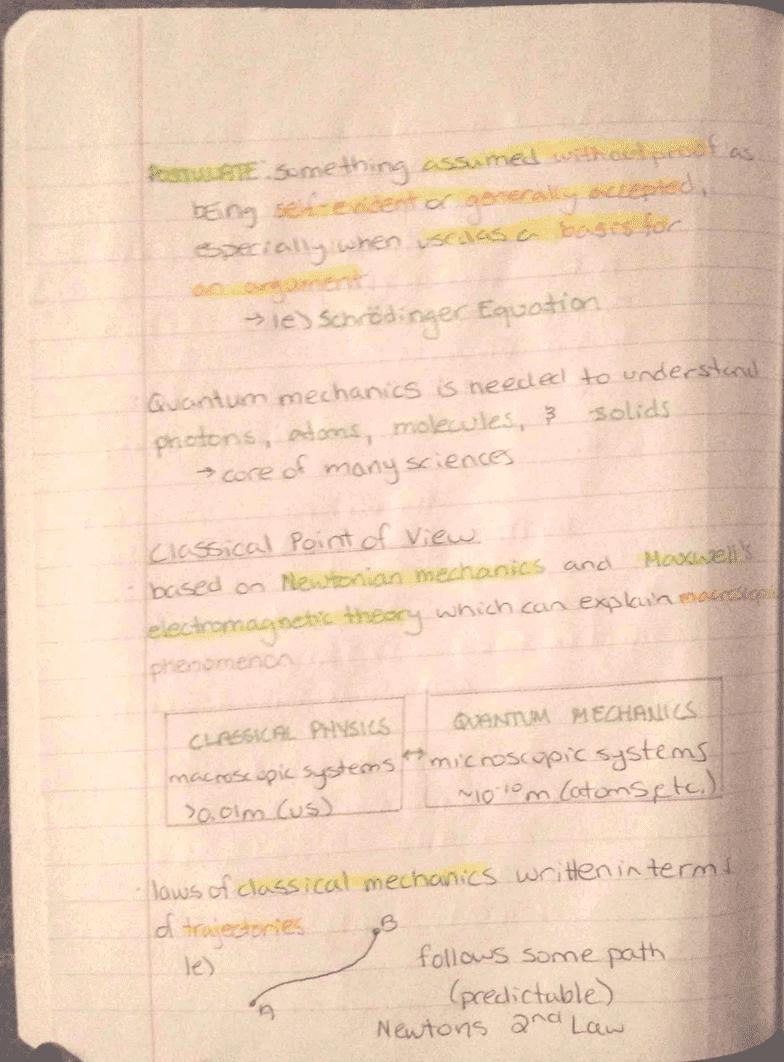 POSTULATE: something assumed without proof as
being self-evident or generally accepted,
especially when used as a basis for
an argument
→ ie) Schrödinger Equation
Quantum mechanics is needed to understand
photons, atoms, molecules, & solids
→ core of many sciences
Classical Point of View
· based on Newtonian mechanics and Maxwell's
electromagnetic theory which can explain
phenomenon
CLASSICAL PHYSICS
macroscopic systems
>0.01m (us)
↔
QUANTUM MECHANICS
microscopic systems
~10⁻¹⁰m (atoms, etc.)
· laws of classical mechanics written in terms
of trajectories
ie)
A
B
follows some path
(predictable)
Newtons 2nd Law